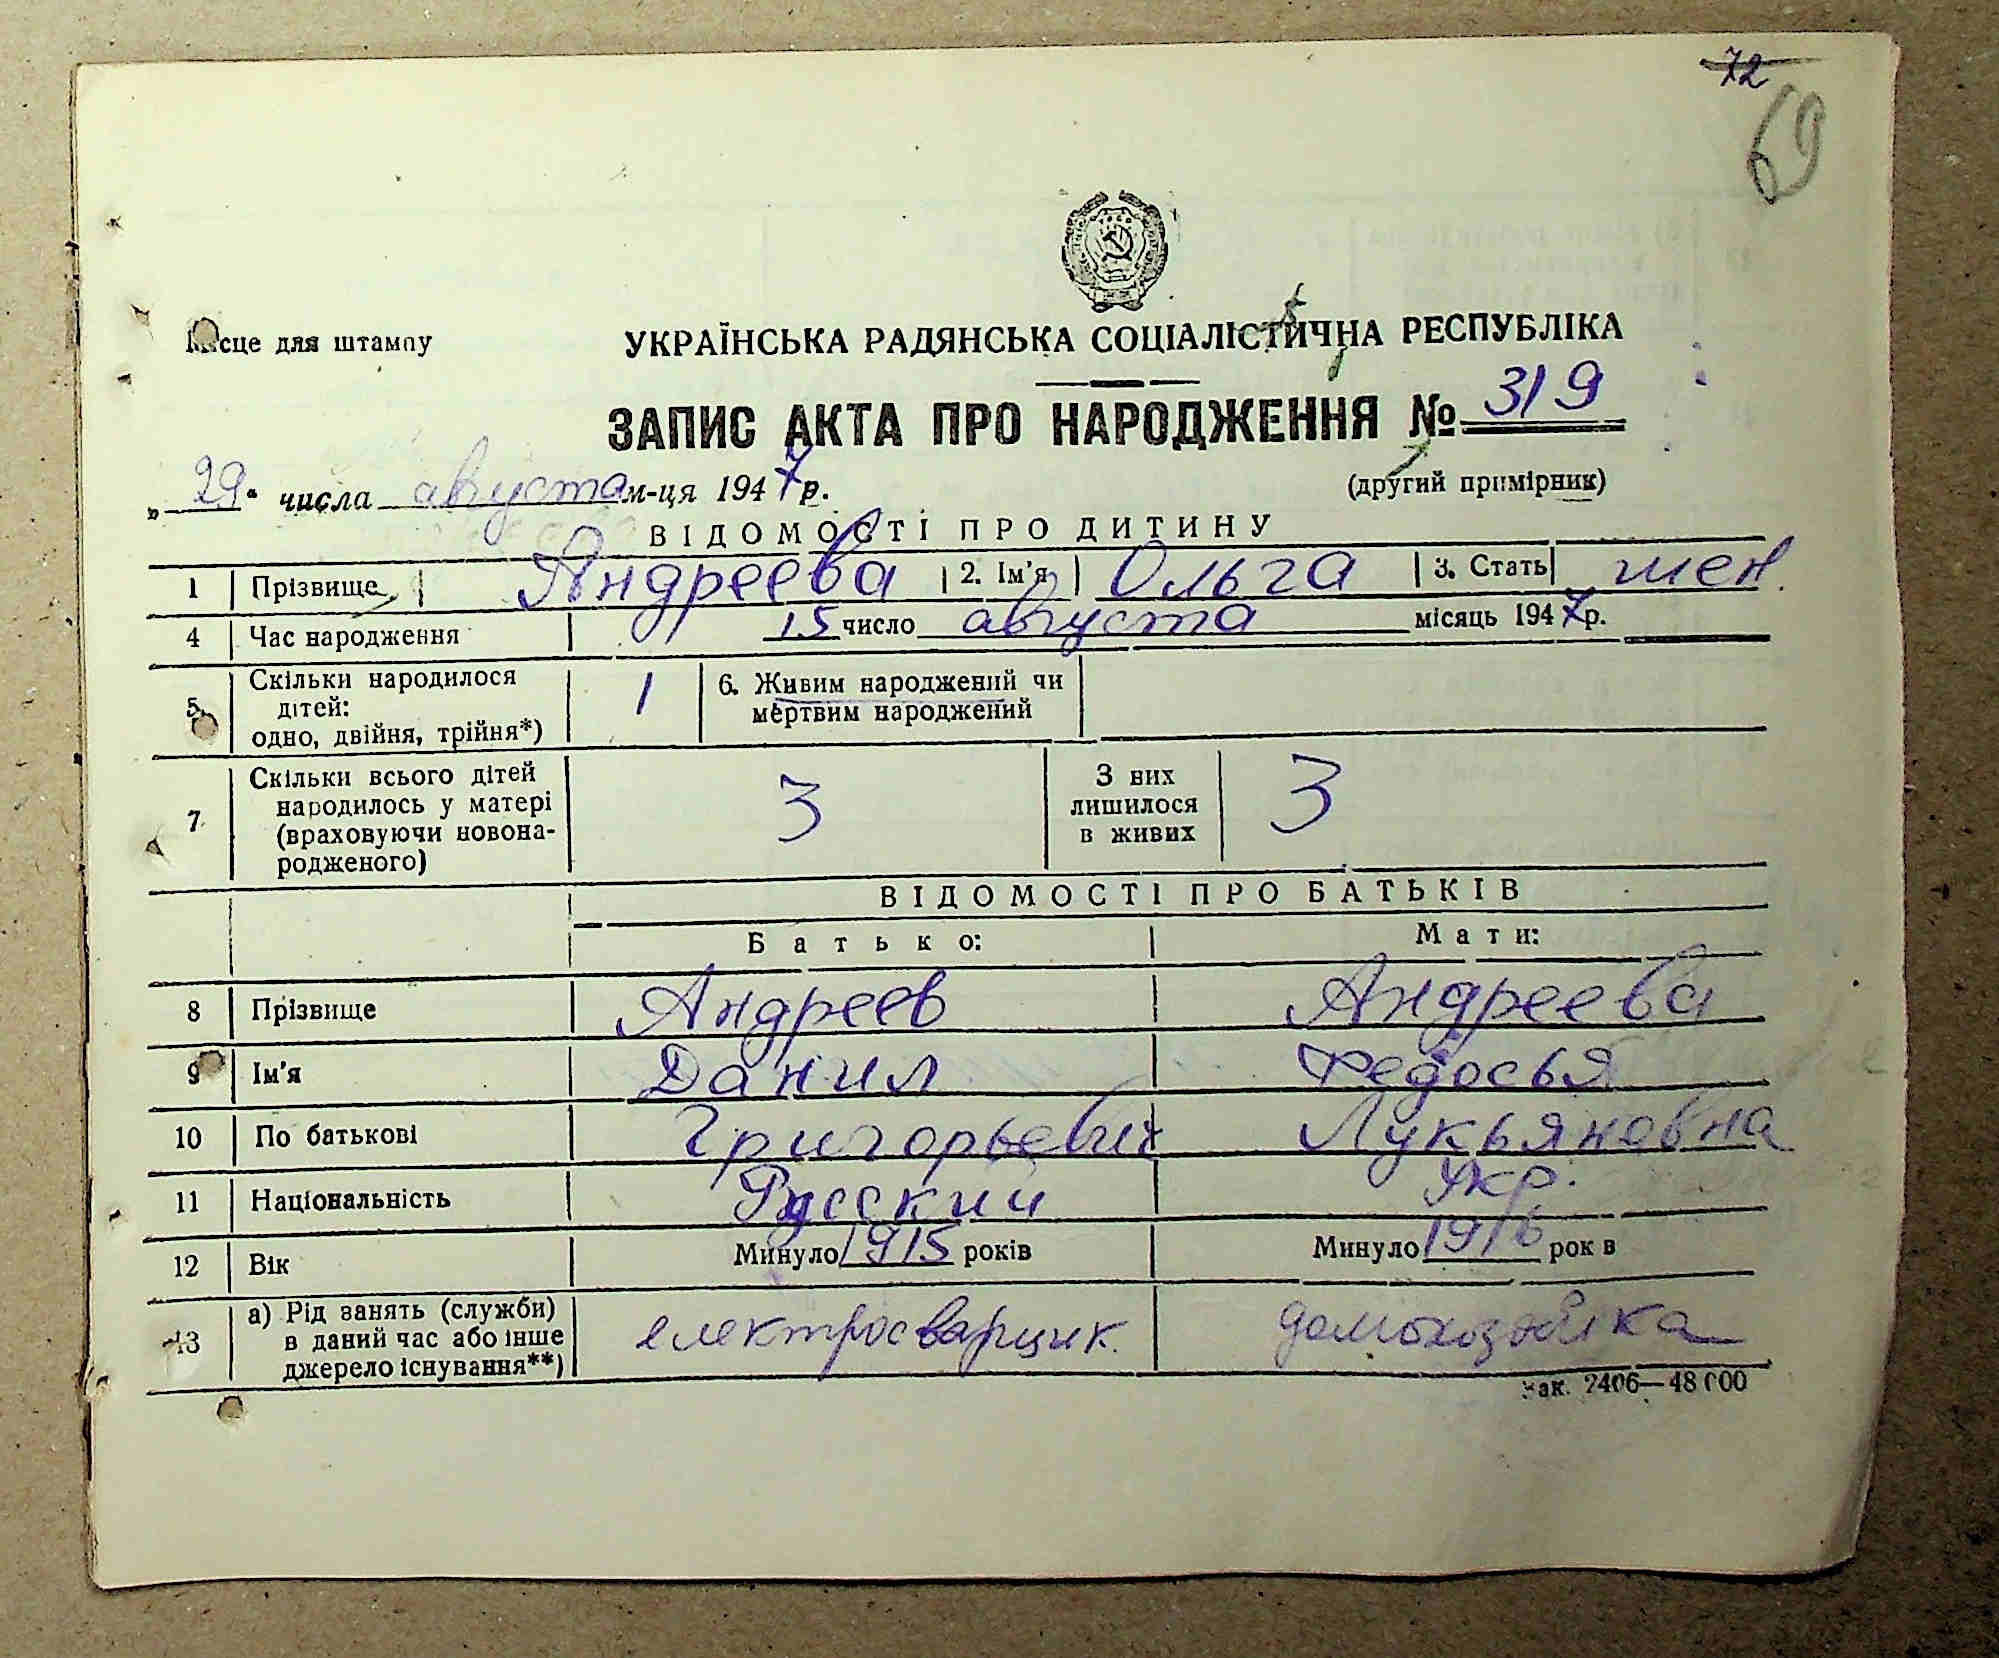 72
69
Місце для штампу
УКРАЇНСЬКА РАДЯНСЬКА СОЦІАЛІСТИЧНА РЕСПУБЛІКА
ЗАПИС АКТА ПРО НАРОДЖЕННЯ № 319
„29“ числа августа м-ця 1947 р. (другий примірник)
ВІДОМОСТІ ПРО ДИТИНУ
1 Прізвище Андреева 2. Ім'я Ольга 3. Стать жен.
4 Час народження 15 число августа місяць 1947 р.
5. Скільки народилося дітей: одно, двійня, трійня*) 1 6. Живим народжений чи мертвим народжений
7. Скільки всього дітей народилось у матері (враховуючи новона-родженого) 3 З них лишилося в живих 3
ВІДОМОСТІ ПРО БАТЬКІВ
Батько: Мати:
8 Прізвище Андреев Андреева
9 Ім'я Данил Федосья
10 По батькові Григорьевич Лукьяновна
11 Національність Русский Укр.
12 Вік Минуло 1915 років Минуло 1916 рок в
13 а) Рід занять (служби) в даний час або інше джерело існування**) електросварщик. домохозяйка
Зак. 2406—48 000